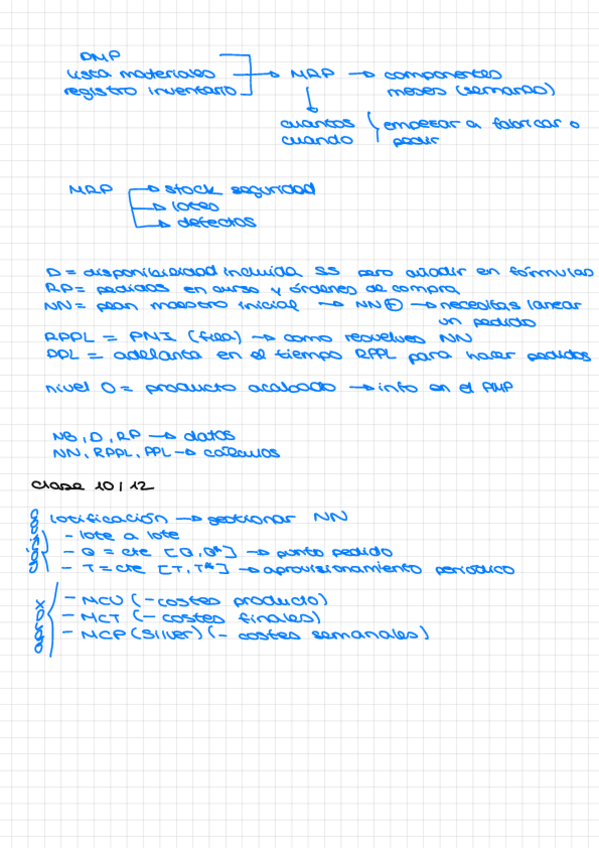 PMP
lista materiales
registro inventario → MRP → componentes
meses (semanas)
cuantos
cuando } empezar a fabricar o
pedir
MRP → stock seguridad
→ lotes
→ defectos
D = disponibilidad incluida SS pero añadir en fórmulas
RP = pedidos en curso y órdenes de compra
NN = plan maestro inicial → NN ⊕ → necesitas lanzar
un pedido
RPPL = PNI (fila) → como resuelves NN
PPL = adelanta en el tiempo RPPL para hacer pedidos
nivel 0 = producto acabado → info en el PMP
NB, D, RP → datos
NN, RPPL, PPL → cálculos
Clase 10/12
lotificación → gestionar NN
clásicas
- lote a lote
- Q = cte [Q, Q*] → punto pedido
- T = cte [T, T*] → aprovisionamiento periódico
aprox
- MCU (- costes producto)
- MCT (- costes finales)
- MCP (Silver) (- costes semanales)